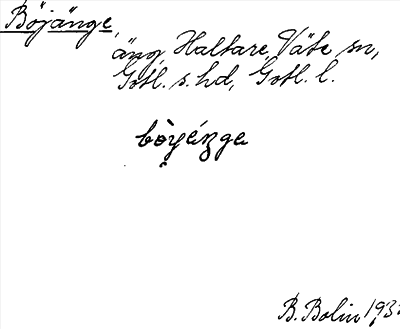 Böjänge,
äng, Haltare, Väte sn,
Gotl. s. hd, Gotl. l.
bòyénge
B. Bolin 193